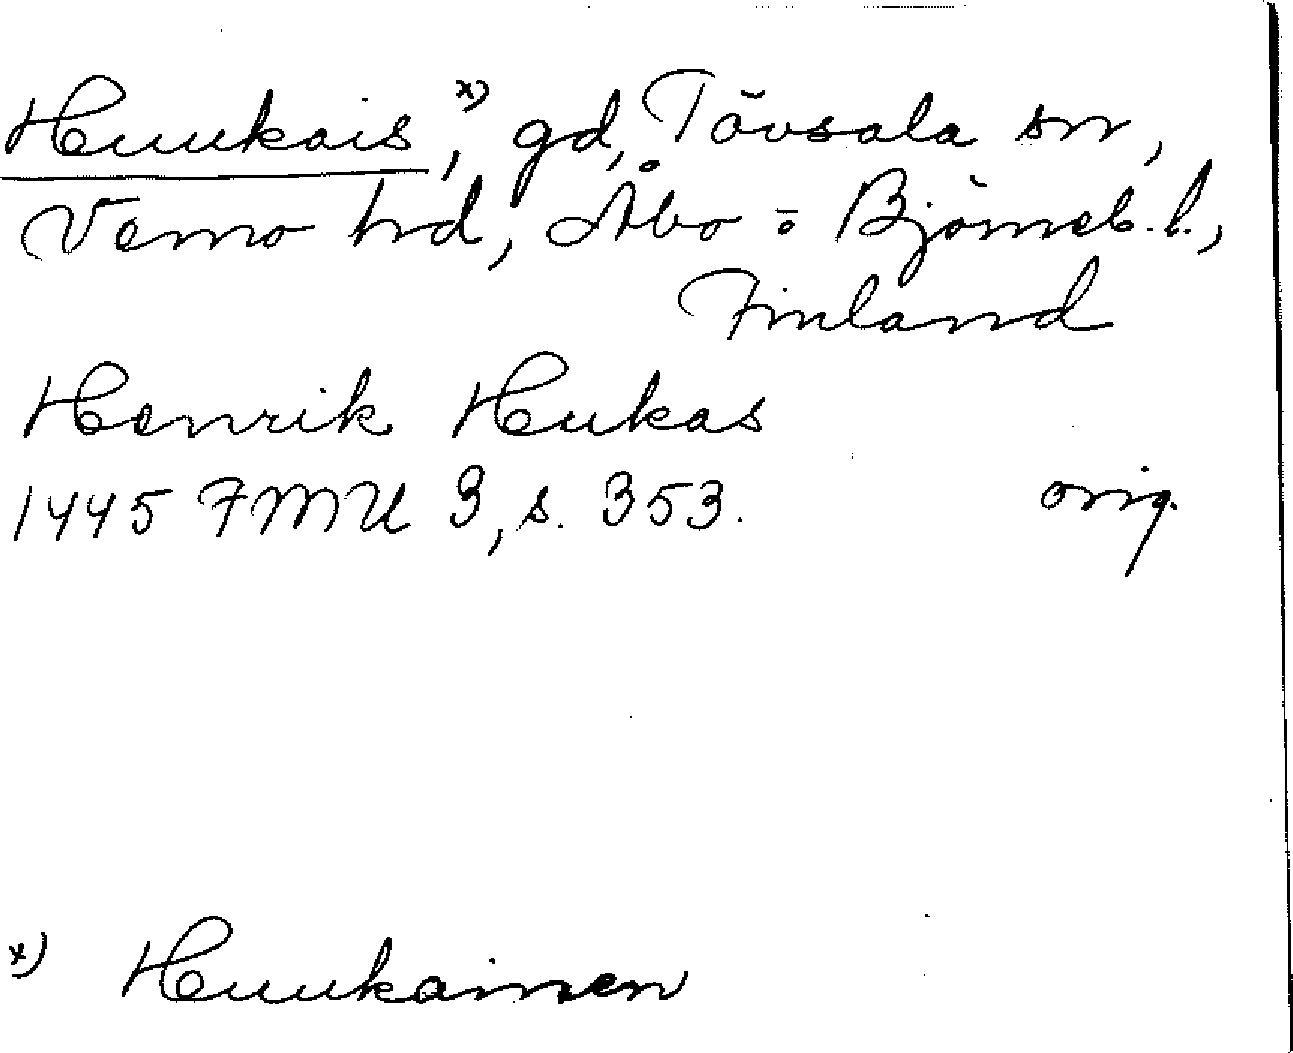 Huukais,ˣ⁾ gd, Tövsala sn,
Vemo hd, Åbo o Björneb. l.,
Finland
Henrik Hukas
1445 FMU 3, s. 353. orig.
x) Huukainen